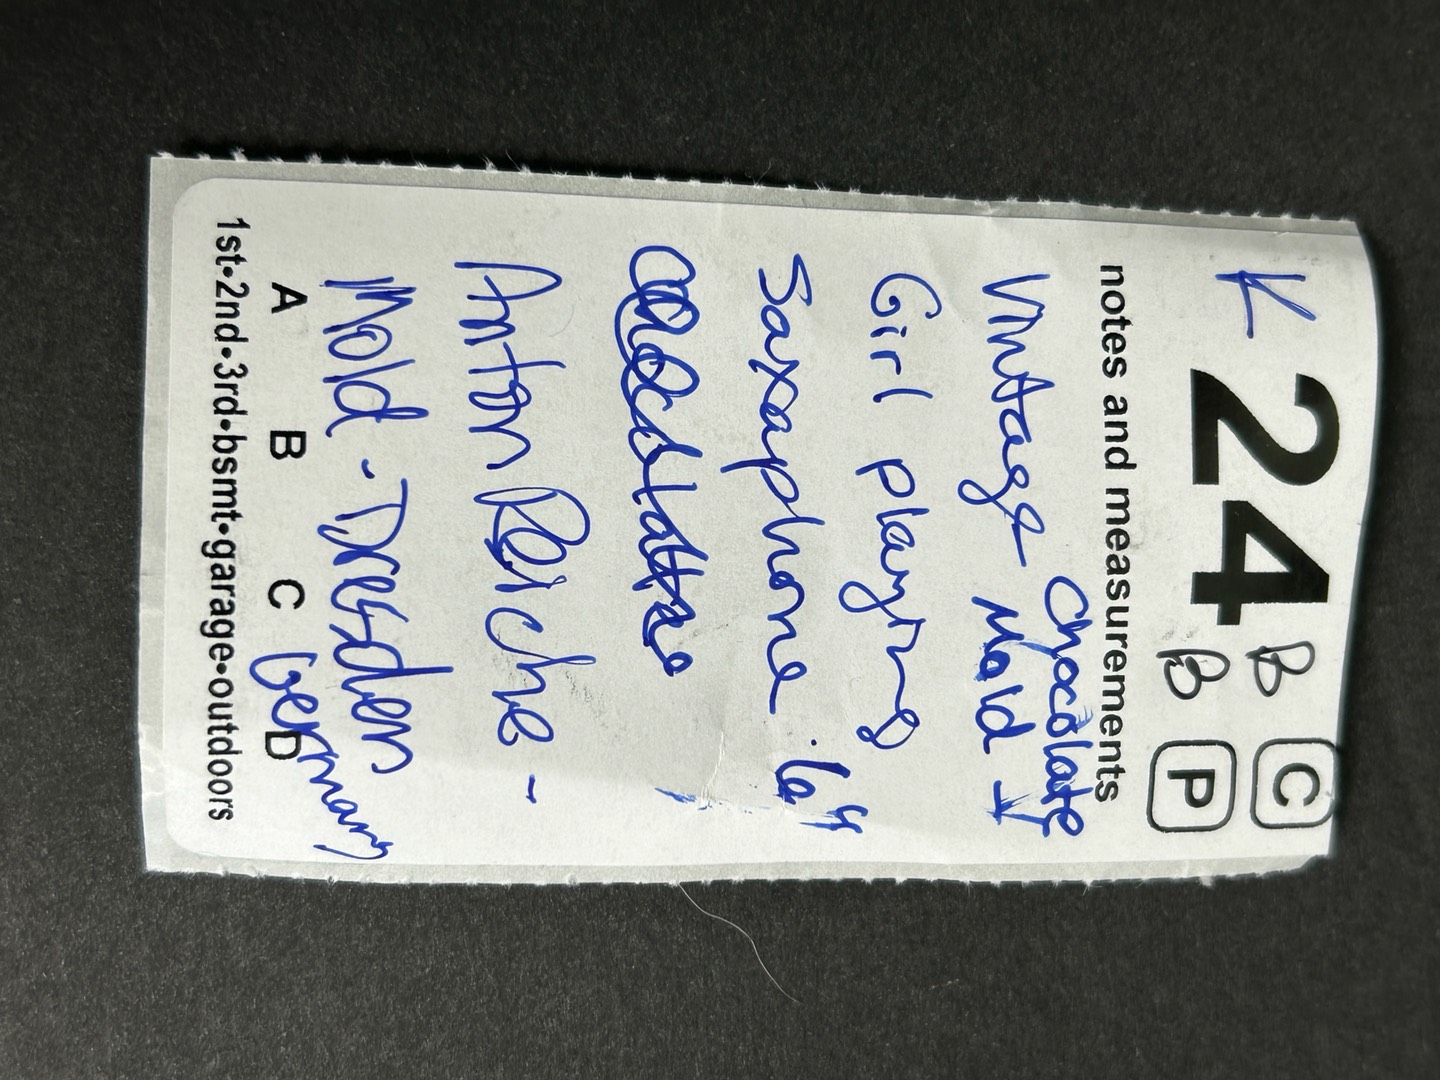 K 24 B C
B P
notes and measurements
Chocolate
Vintage Mold ↓
Girl playing
Saxaphone · 6"
Anton Reiche -
Mold - Dresden
Germany
A B C D
1st•2nd•3rd•bsmt•garage•outdoors